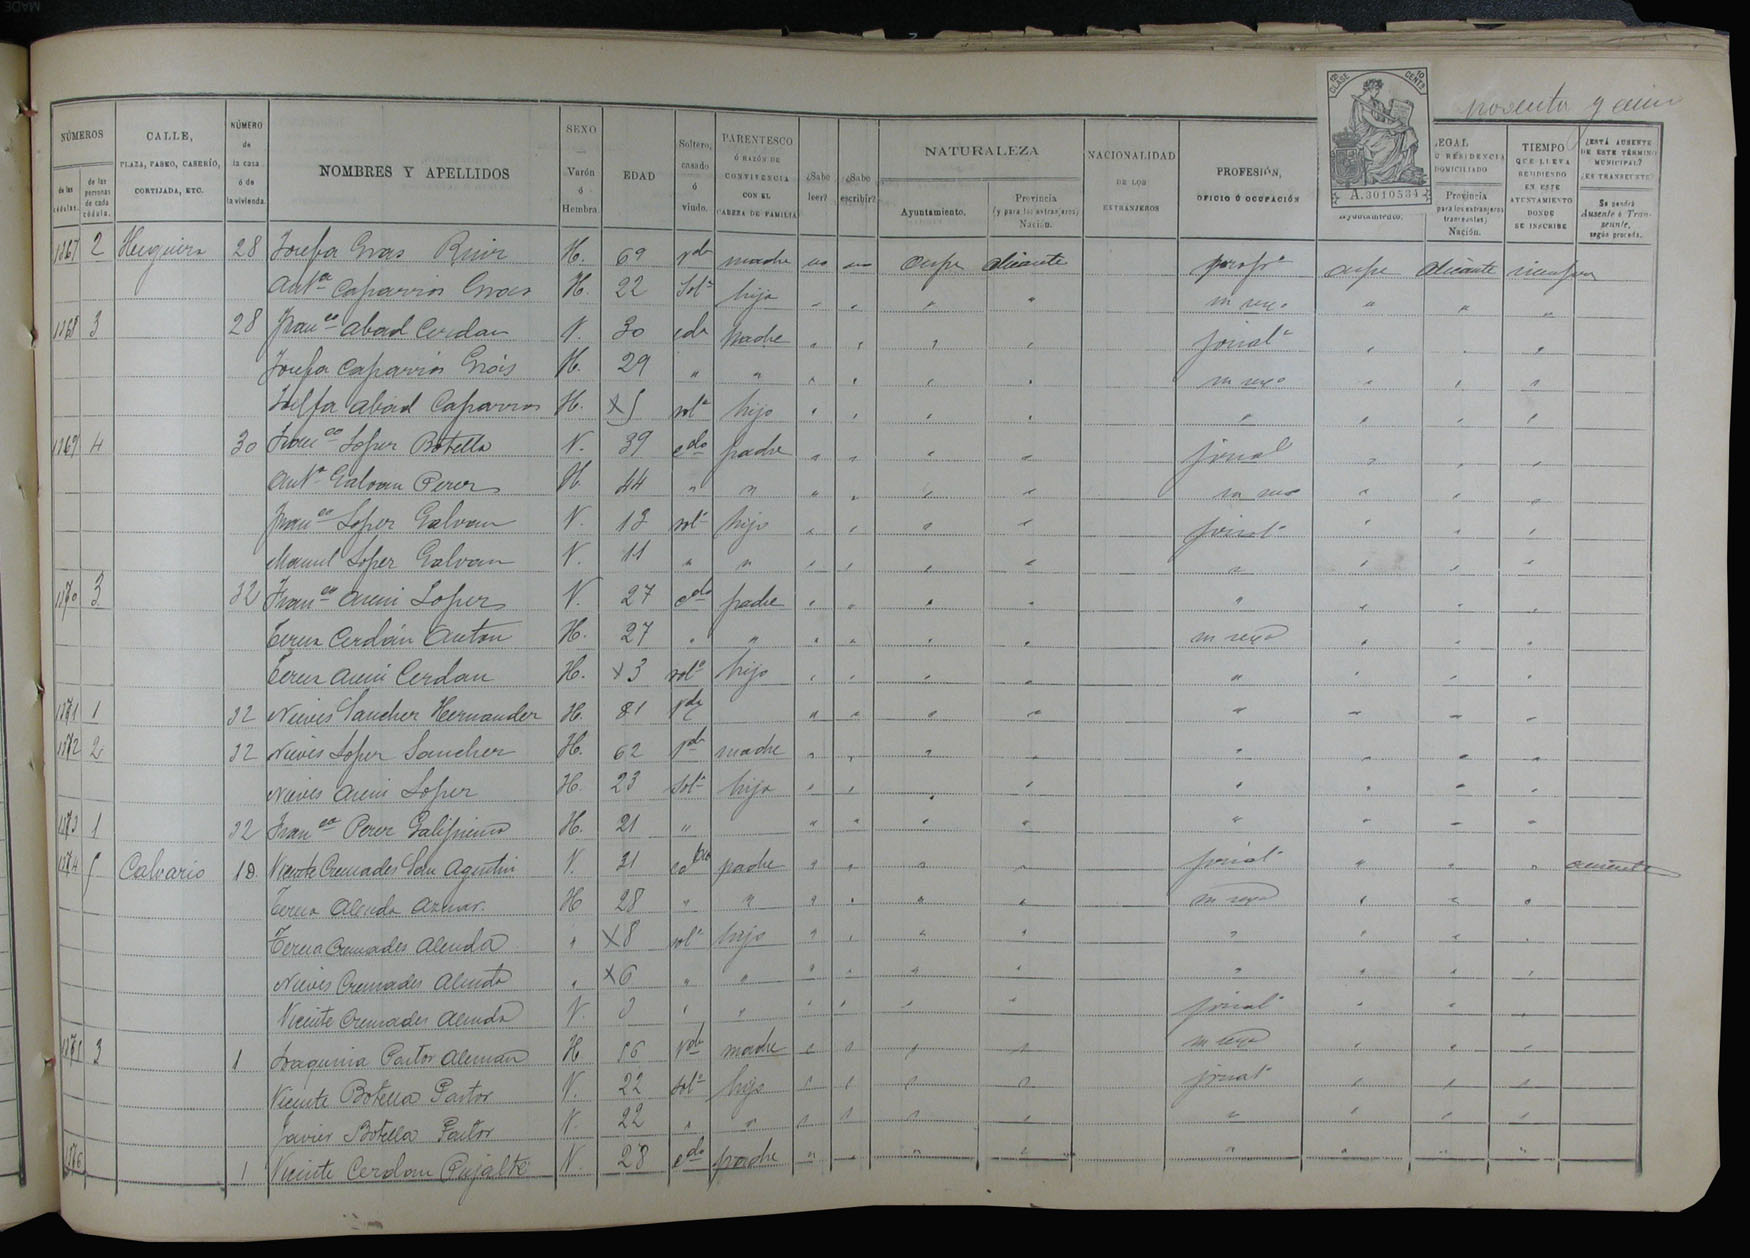 MADE
noventa y cinco
12ª CLASE
10 CENTs
A.3010534
NÚMEROS
de las cédulas.
de las personas de cada cédula.
CALLE,
PLAZA, PASEO, CASERÍO,
CORTIJADA, ETC.
NÚMERO
de
la casa
ó de
la vivienda.
NOMBRES Y APELLIDOS
SEXO
—
Varón
ó
Hembra.
EDAD
Soltero,
casado
ó
viudo.
PARENTESCO
Ó RAZÓN DE
CONVIVENCIA
CON EL
CABEZA DE FAMILIA
¿Sabe leer?
¿Sabe escribir?
NATURALEZA
Ayuntamiento.
Provincia
(y para los extranjeros)
Nación.
NACIONALIDAD
DE LOS
EXTRANJEROS
PROFESIÓN,
OFICIO Ó OCUPACIÓN
LEGAL
Ó RESIDENCIA
DOMICILIADO
Ayuntamiento.
Provincia
para los extranjeros
transeuntes)
Nación.
TIEMPO
QUE LLEVA
RESIDIENDO
EN ESTE
AYUNTAMIENTO
DONDE
SE INSCRIBE
¿ESTÁ AUSENTE
DE ESTE TÉRMINO
MUNICIPAL?
¿ES TRANSEUNTE?
Se pondrá
Ausente ó Tran-
seunte,
según proceda.
1367 2 28 Josefa Gras Ruiz H. 69 Vda madre no no Aspe Alicante Aspe Alicante siempre
Antª Caparrós Gras H. 22 Solª hija " " " " " " "
1368 3 28 Franco Abad Cerdan V. 30 cdo Padre " " " " jornalº " " "
Josefa Caparrós Grás H. 29 " " " " " " " " "
Josefa Abad Caparros H. X 5 solª hijo " " " " " " " "
1369 4 30 Franco Lopez Botella V. 39 cdo padre " " " " jornal " " "
Antª Galvan Perez H. 44 " " " " " " " " "
Franco Lopez Galvan V. 13 solº hijo " " " " jornalº " " "
Manuel Lopez Galvan V. 11 " " " " " " " " " "
1370 3 32 Franco Lopez V. 27 cdo padre " " " " " " " "
Teresa Cerdán Anton H. 27 " " " " " " " " "
Teresa Cerdan H. X 3 solª hijo " " " " " " " "
1371 1 32 Nieves Sanchez Hernandez H. 81 Vda " " " " " " " "
1372 2 32 Nieves Lopez Sanchez H. 62 Vda madre " " " " " " " "
Nieves Lopez H. 23 Solª hija " " " " " " " "
1373 1 32 Franca Perez H. 21 " " " " " " " " "
1374 5 Calvario 10 Vicente Cremades San Agustin V. 31 cado padre " " " " jornalº " " " ausente
Teresa Alenda Aznar. H 28 " " " " " " " " "
Teresa Cremades Alenda " X 8 solª hijo " " " " " " " "
Nieves Cremades Alenda " X 6 " " " " " " " " " "
Vicente Cremades Alenda V. " " " " " " jornalº " " "
1375 3 1 Joaquina Pastor Aleman H 56 Vda madre " " " " " " "
Vicente Botella Pastor V. 22 solº hijo " " " " jornalº " " "
Javier Botella Pastor V. 22 " " " " " " " " " "
1376 1 Vicente Cerdan Pujalte V. 28 cdo padre " " " " " " " "